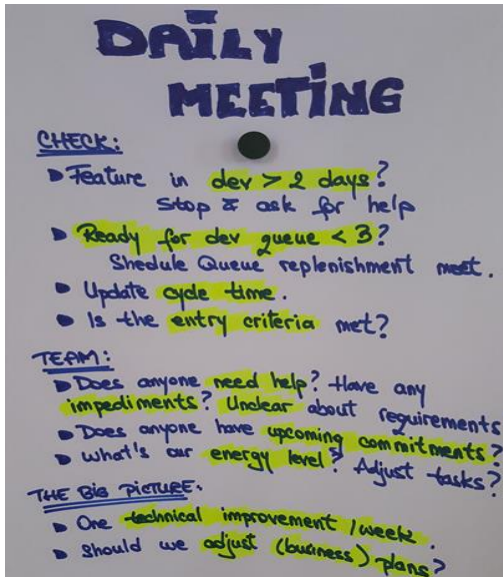 DAILY
MEETING
CHECK:
Feature in dev > 2 days?
Stop & ask for help
Ready for dev queue < 3?
Shedule Queue replenishment meet.
Update cycle time.
Is the entry criteria met?
TEAM:
Does anyone need help? Have any
impediments? Unclear about requirements
Does anyone have upcoming commitments?
What's our energy level? Adjust tasks?
THE BIG PICTURE:
One technical improvement / week.
Should we adjust (business) plans?